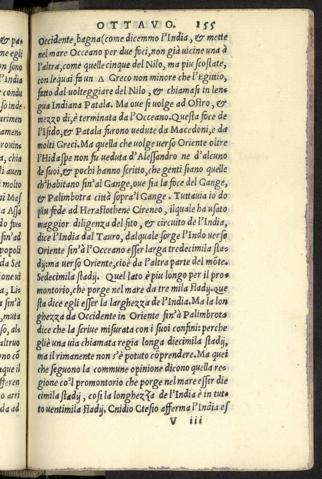 OTTAVO. 155
Occidente, bagna (come dicemmo l'India, & mette
nel mare Oceano per due foci, non già uicine una à
l'altra, come quelle cinque del Nilo, ma piu scostate,
con lequai fa un Δ Greco non minore che l'Egittio,
fatto dal uolteggiare del Nilo, & chiamasi in len-
gua Indiana Patala. Ma oue si uolge ad Ostro, &
mezzo dì, è terminata da l'Occeano. Questa foce de
l'Isido, & Patala furono uedute da Macedoni, e da
molti Greci. Ma quella che uolge uerso Oriente oltre
l'Hidaspe non fu ueduta d'Alessandro ne d'alcuno
de suoi, & pochi hanno scritto, che genti siano quelle
ch'habitano fin'al Gange, oue sia la foce del Gange,
& Palimbotra città sopra'l Gange. Tuttauia io do
piu fede ad Heratosthene Cireneo, ilquale ha usato
maggior diligenza del sito, & circuito de l'India,
dice l'India dal Tauro, dalquale sorge l'Indo uerso
Oriente fin'à l'Occeano esser larga tredecimila sta-
dij: ma uerso Oriente, cioè da l'altra parte del mõte.
Sedecimila stadij. Quel lato è piu longo per il pro-
montorio, che porge nel mare da tre mila stadij. que
sta dice egli esser la larghezza de l'India. Ma la lon
ghezza da Occidente in Oriente fin'à Palimbrota
dice che la scriue misurata con i suoi confini: perche
gliè una uia chiamata regia longa diecimila stadij,
ma il rimanente non s'è potuto cõprendere. Ma quei
che seguono la commune opinione dicono quella re-
gione co'l promontorio che porge nel mare essir die
cimila stadij, cosi la longhezza de l'India è in tut-
to uentimila stadij. Cnidio Ctesio afferma l'India es
V iii